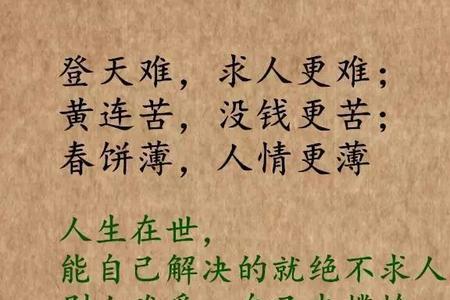 登天难，求人更难；
黄连苦，没钱更苦；
春饼薄，人情更薄
人生在世，
能自己解决的就绝不求人